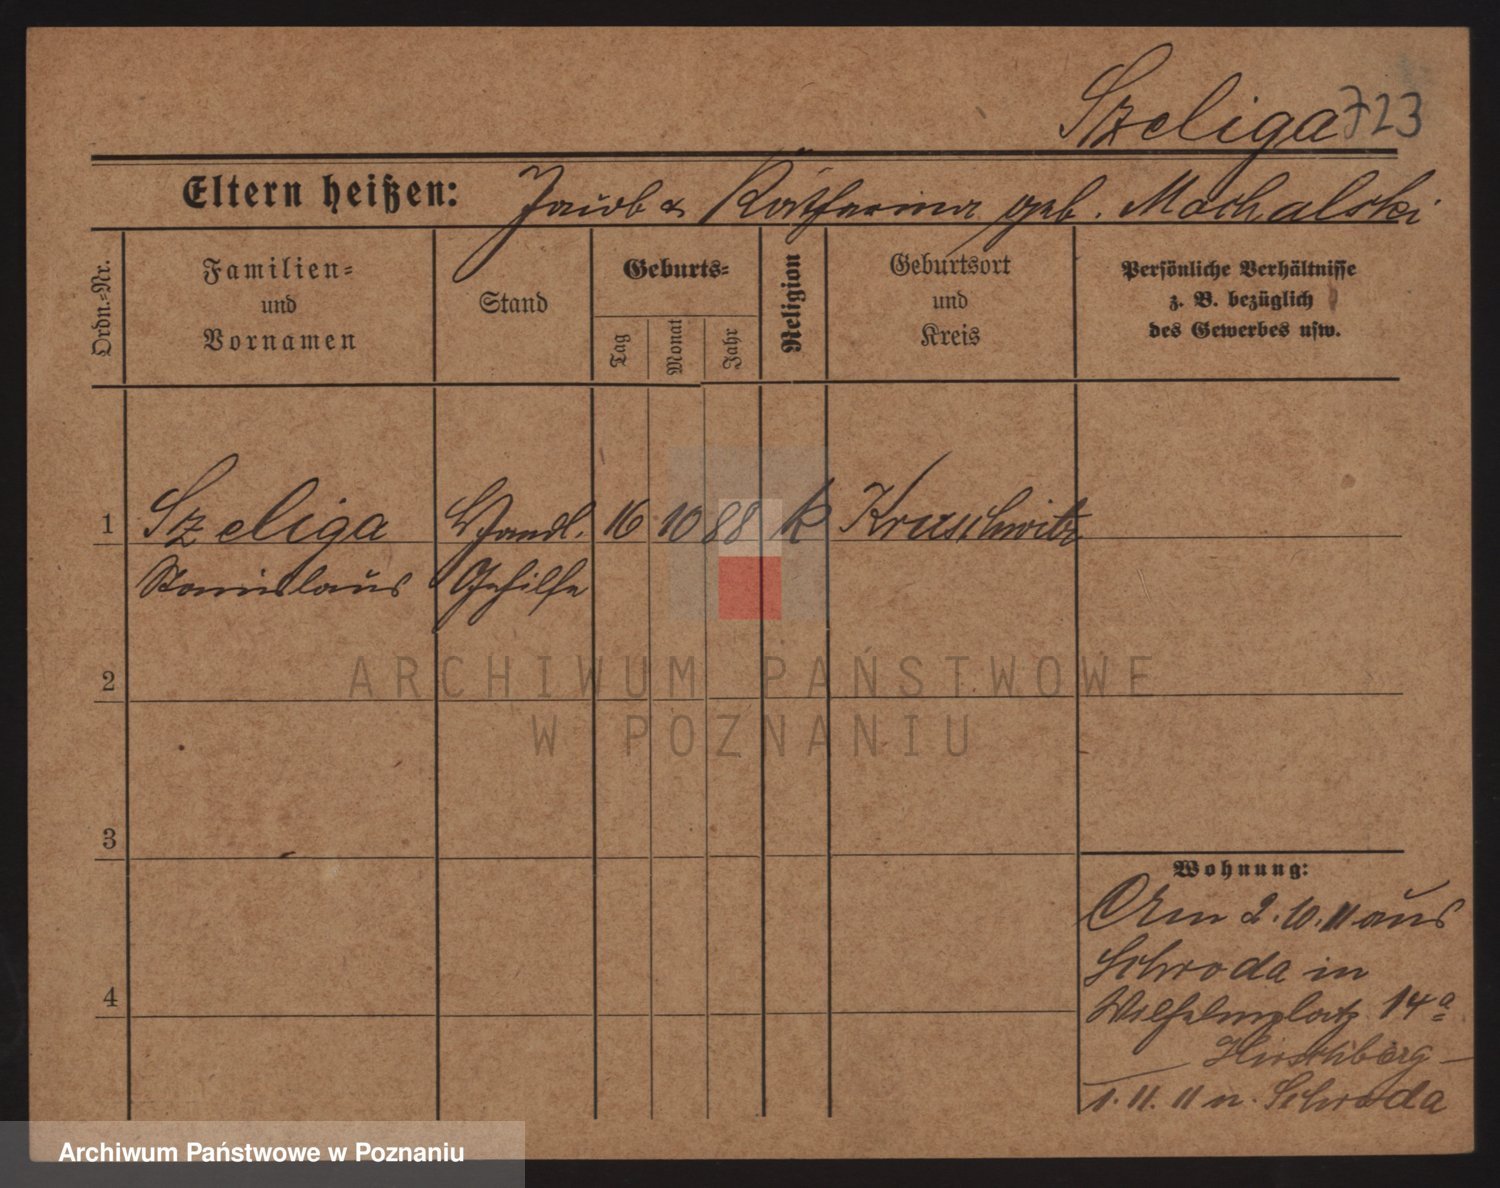 Szeliga 723
Eltern heißen: Jacob & Katharina geb. Mochalski
Ordn.=Nr.
Familien=
und
Vornamen
Stand
Geburts=
Tag
Monat
Jahr
Religion
Geburtsort
und
Kreis
Persönliche Verhältnisse
z. B. bezüglich
des Gewerbes usw.
1 Szeliga Handl. 16 10 88 k Kruschwitz
Stanislaus Gehilfe
2
3
4
Wohnung:
Am 2.10.11 aus
Schroda in
Wilhelmplatz 14a
Hirschberg
1.11.11 n. Schroda
ARCHIWUM PAŃSTWOWE
W POZNANIU
Archiwum Państwowe w Poznaniu